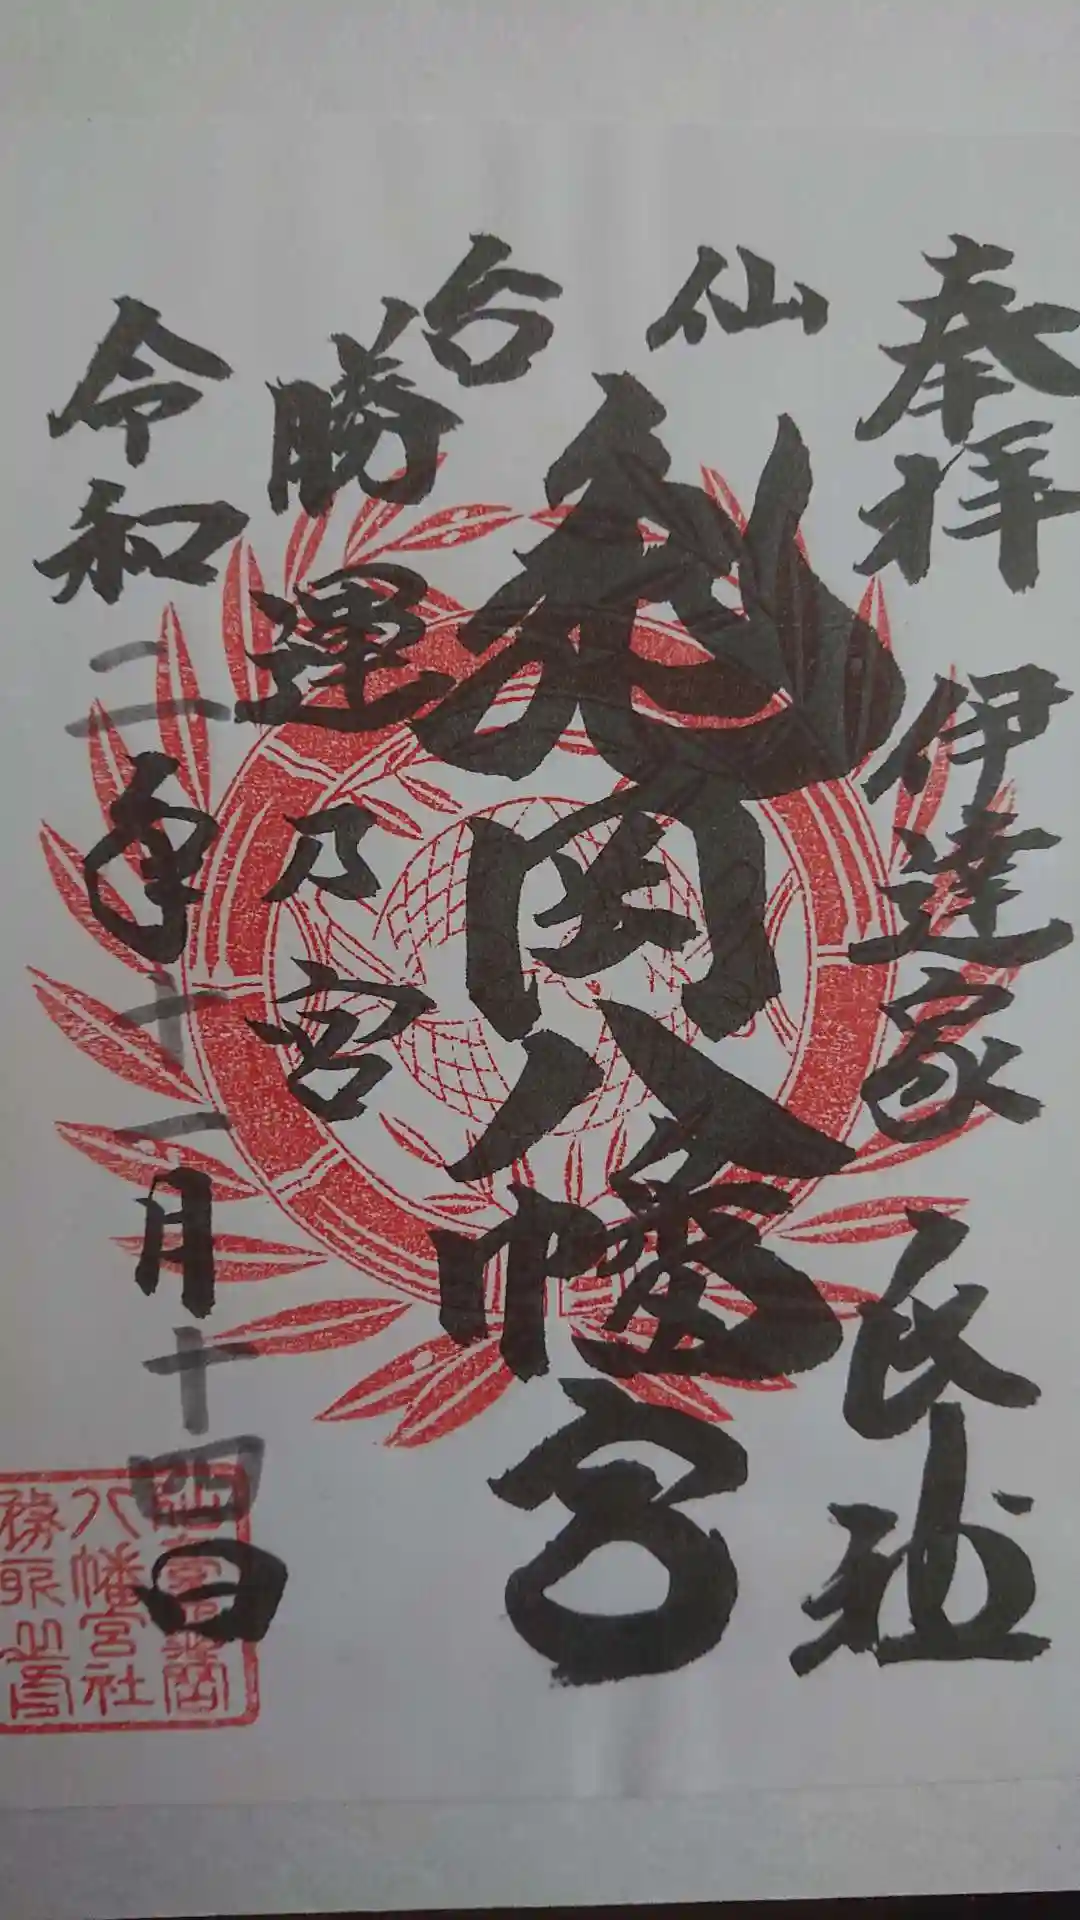 奉拝 伊達家 氏社
仙台
亀岡八幡宮
勝運乃宮
令和二年十二月十四日
仙臺亀岡
八幡宮社
務所之印